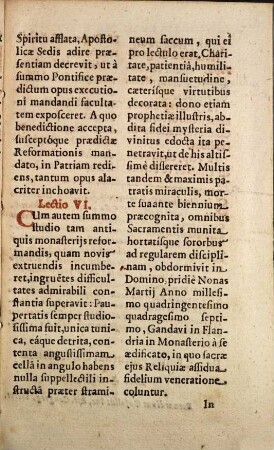 Spiritu afflata, Apostolicæ
Sedis adire præsentiam
decrevit, ut à
summo Pontifice prædictum
opus executioni
mandandi facultatem
exposceret. A quo
benedictione accepta,
susceptóque prædictæ
Reformationis mandato,
in Patriam rediens,
tantum opus alacriter
inchoavit.
Lectio VI.
CUm autem summo
studio tam antiquis
monasterijs reformandis,
quam novis
extruendis incumberet,
ingrùetes difficultates
admirabili constantia
superavit: Paupertatis
semper studiosissima
fuit, unica tunica,
eáque detrita, contenta
angustissimam
cellã in angulo habens
nulla suppellectili instructã
præter stramineum
saccum, qui ei
pro lectulo erat, Charitate,
patientiâ, humilitate,
mansuetudine,
cæterisque virtutibus
decorata: dono etiam
prophetiæ illustris, abdita
fidei mysteria divinitus
edocta ita penetravit,
ut de his altissimè
dissereret. Multis
tandem & maximis patratis
miraculis, morte
suâ ante biennium
præcognita, omnibus
Sacramentis munita
hortatisque sororbus
ad regularem disciplinam,
obdormivit in
Domino, pridiè Nonas
Martij Anno millesimo
quadringentesimo
quadragesimo septimo,
Gandavi in Flandria
in Monasterio à se
ædificato, in quo sacræ
ejus Reliquiæ assidua
fidelium veneratione
coluntur.
In